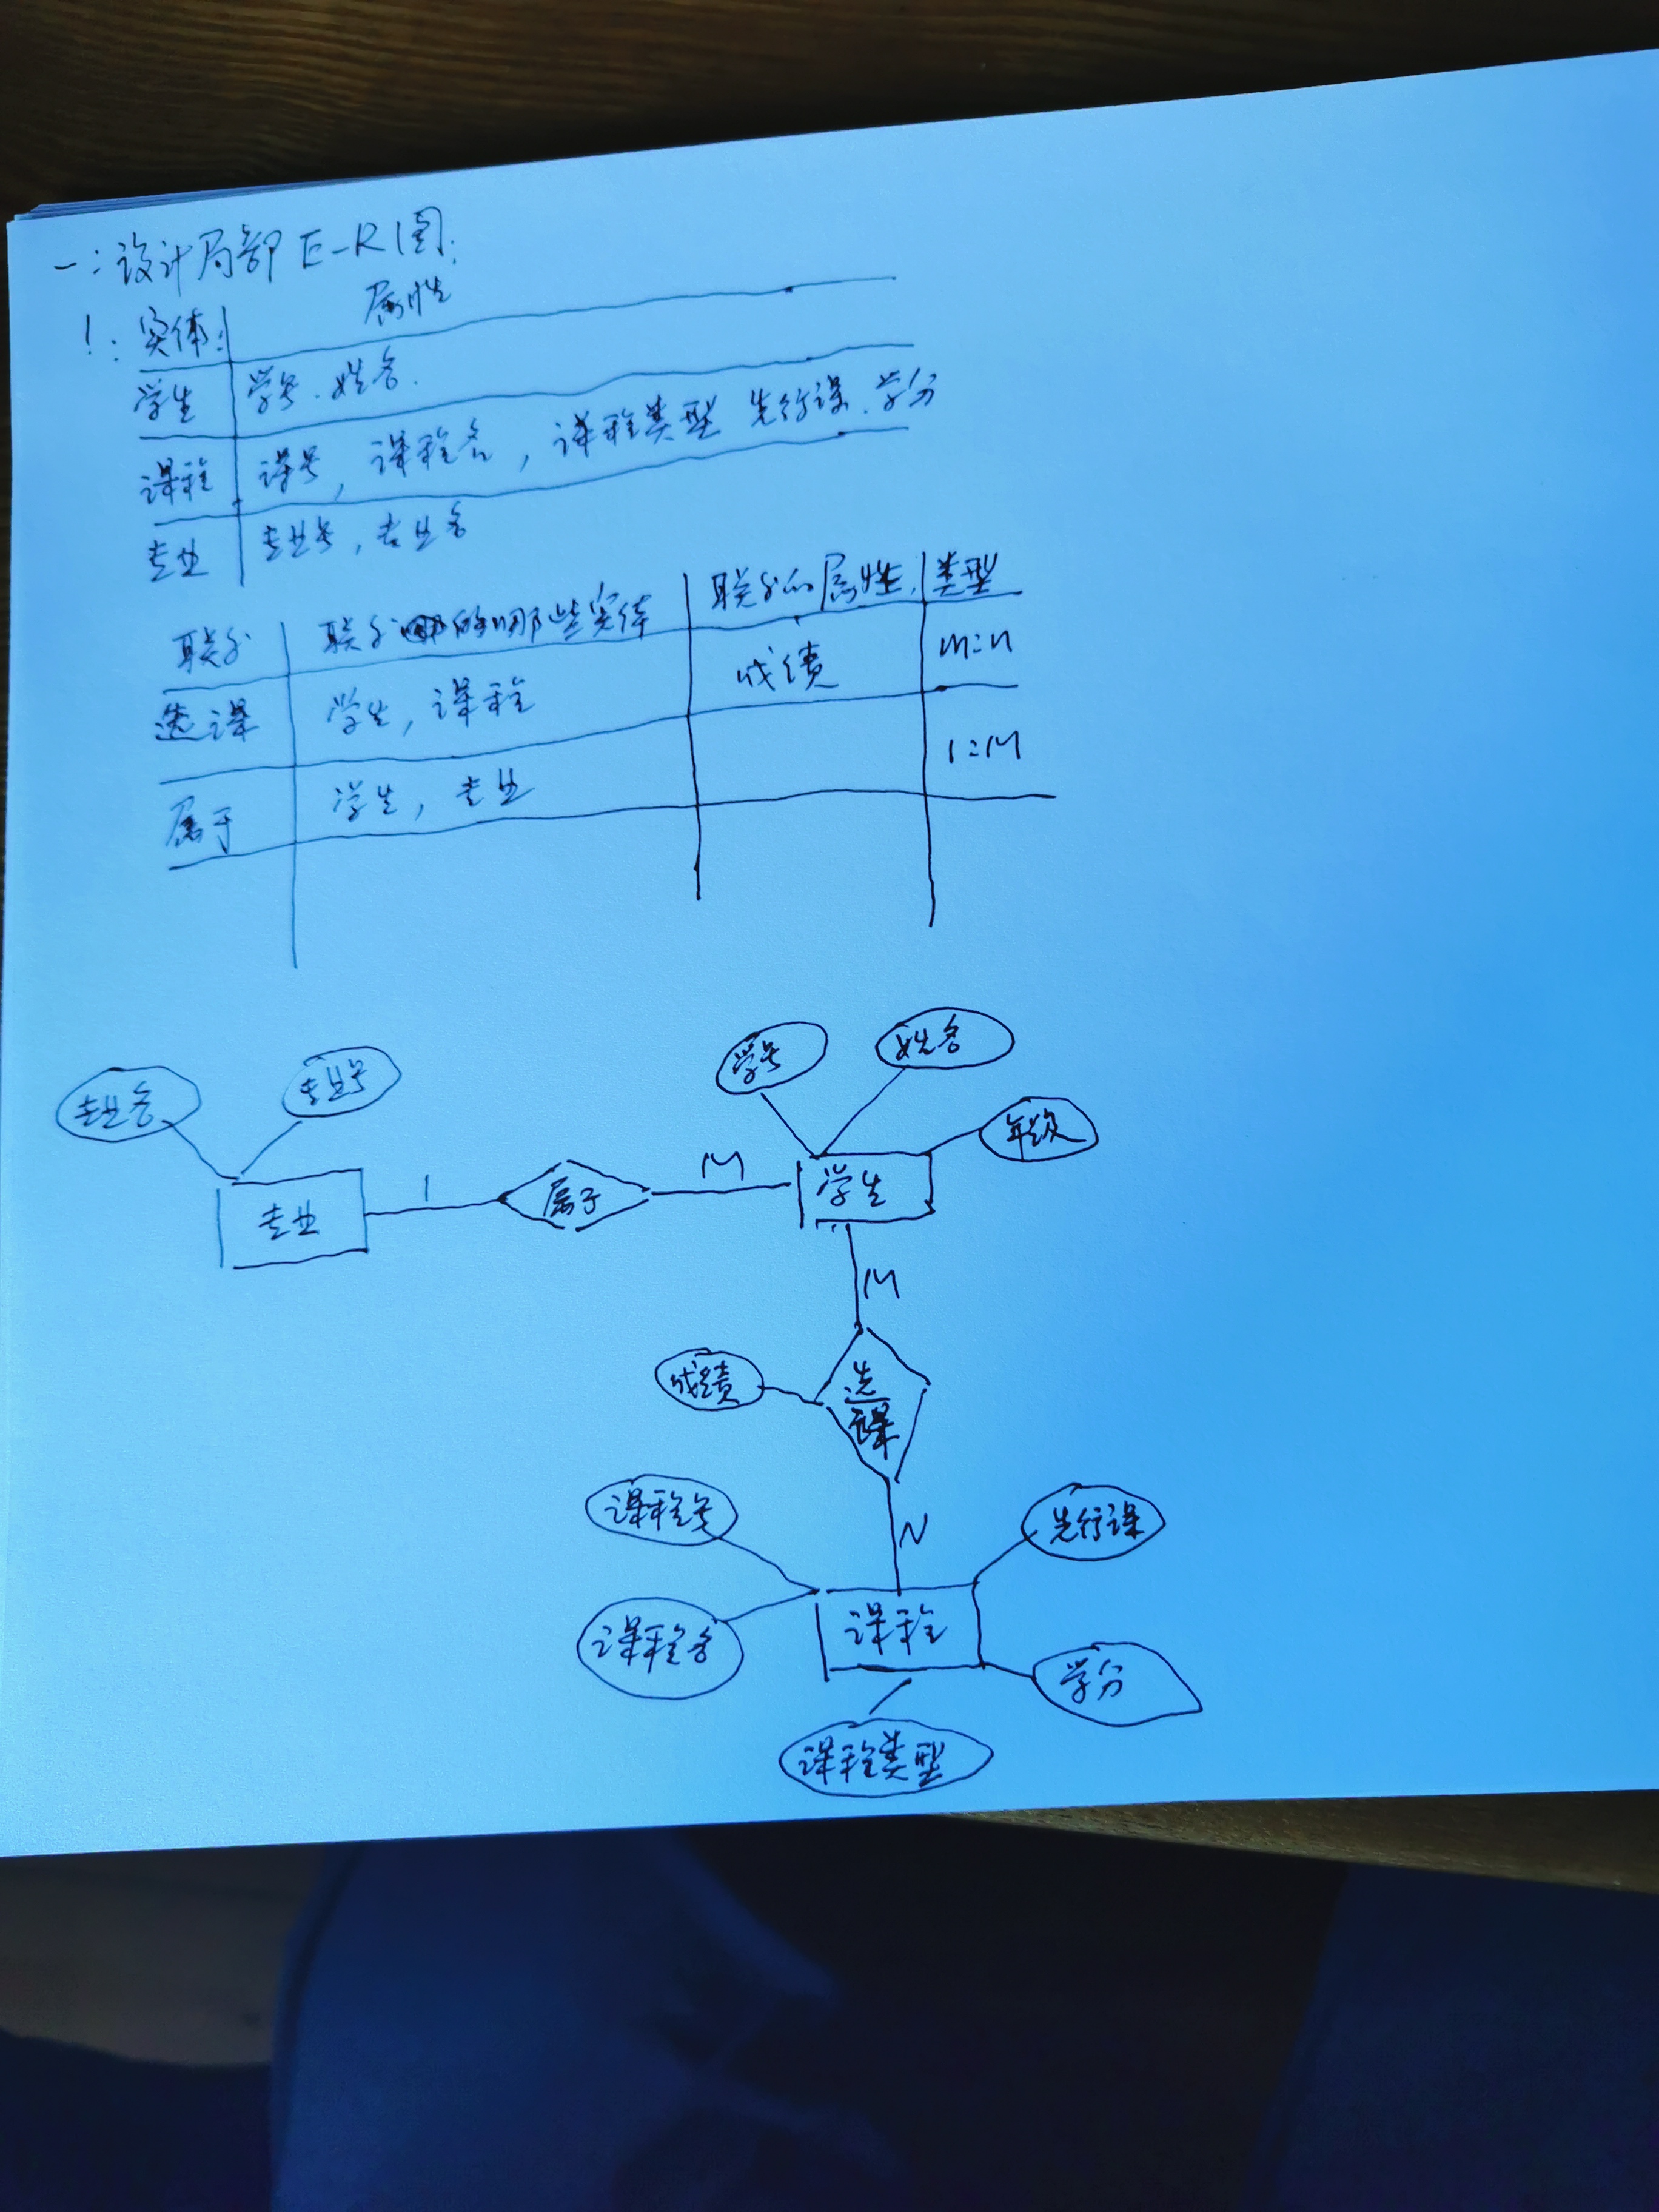 一:设计局部E-R图:
1:实体: 属性
学生 学号.姓名.
课程 课号,课程名,课程类型 先行课.学分
专业 专业号,专业名
联系 联系的哪些实体 联系的属性. 类型
选课 学生,课程 成绩 m:n
属于 学生,专业 1:M
学号 姓名
专业名 专业号 年级
专业 1 属于 M 学生
M
成绩 选课
课程号 N 先行课
课程名 课程 学分
课程类型